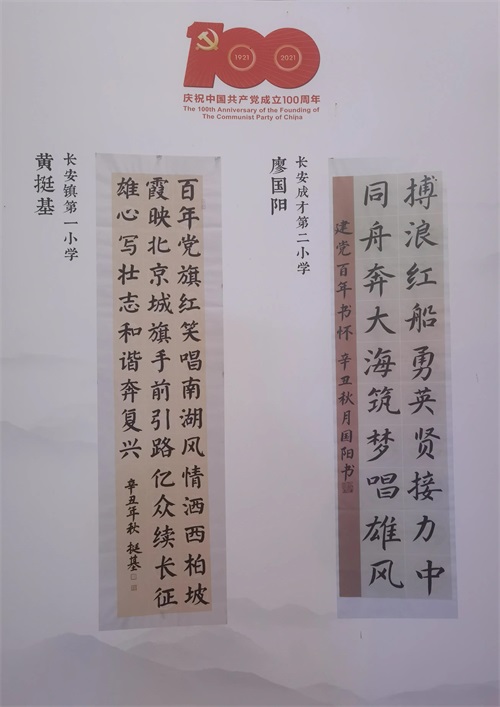 100
1921 2021
庆祝中国共产党成立100周年
The 100th Anniversary of the Founding of
The Communist Party of China
长安镇第一小学
黄挺基
百年党旗红笑唱南湖风情洒西柏坡
霞映北京城旗手前引路亿众续长征
雄心写壮志和谐奔复兴
辛丑年秋 挺基
长安成才第二小学
廖国阳
搏浪红船勇英贤接力中
同舟奔大海筑梦唱雄风
建党百年书怀 辛丑秋月国阳书